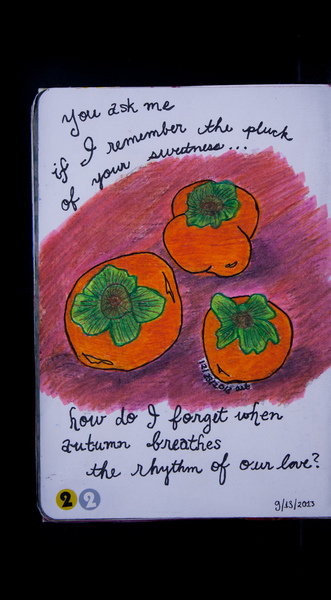 you ask me
if I remember the pluck
of your sweetness...
how do I forget when
autumn breathes
the rhythm of our love?
2 2
9/13/2013